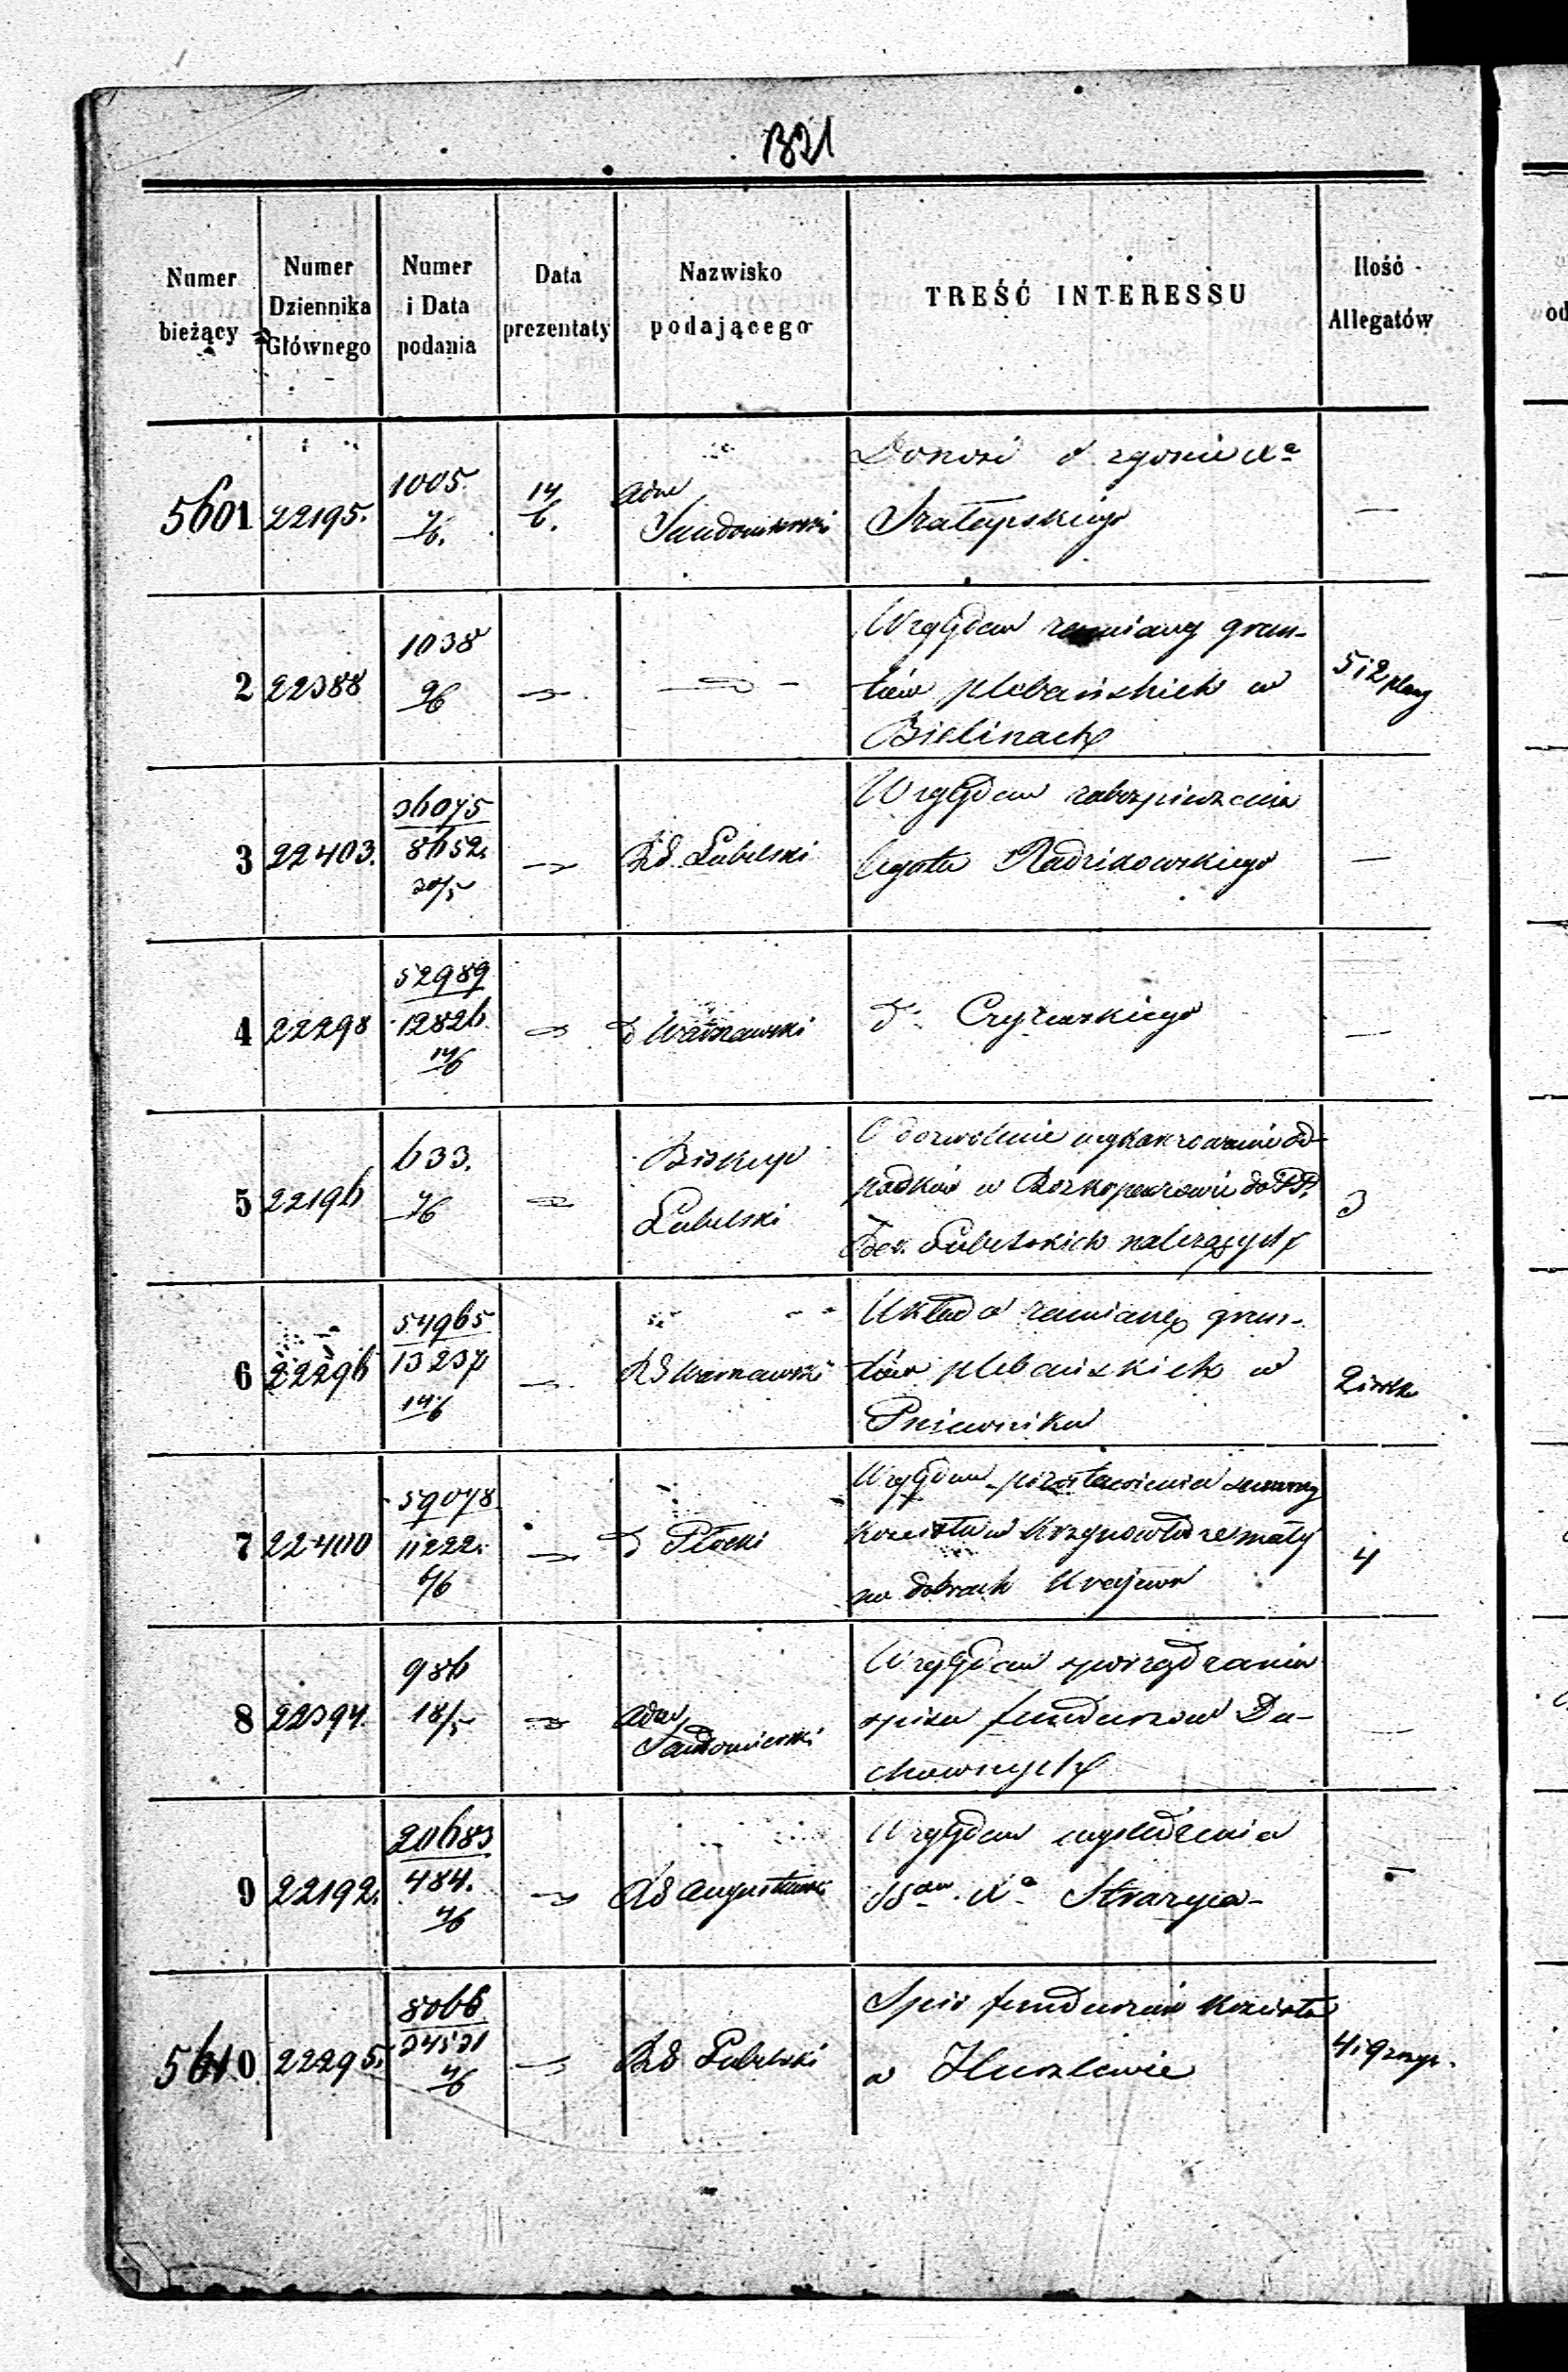 1321
Numer bieżący
Numer Dziennika Głównego
Numer i Data podania
Data prezentaty
Nazwisko podającego
TREŚĆ INTERESSU
Ilość Allegatów
5601 22195. 1005. 7/6. 14/6. Adm Sandomierski Donosi o zgonie Xa
Szałapskiego —
2 22388 1038 9/6 Względem zamiany grun-
tów plebańskich w
Bielinach
5 i 2 plany
3 22403. 36075
8652.
30/5
Rd. Lubelski Względem zabezpieczenia
legatu Radzikowskiego —
4 22298 52989
12826
14/6
Do Warszawski do Czyżewskiego —
5 22196 633. 7/6
Biskup
Lubelski
O dozwolenie wykonzowania od-
padków w do PP.
Lubelskich należących
3
6 22296 54965
13237
14/6
Rd Warszawski
Układ o zamianę grun-
tów plebańskich w
Pniewniku
7 22400 59078
11222.
6/6
Do Płocki
Względem pozostawienia summy
kościoła w Krzynowłodze małej
na dobrach
4
8 22394. 986
18/5
Adm
Sandomierski
Względem sporządzania
spisu funduszów Du-
chownych —
9 22192. 20683
484.
7/6
Rd Augustowski
Względem wyśledzenia
Xa —
5610 22295. 8066
24531
7/6
Rd Lubelski
Spis funduszów kościoła
w Huszlewie